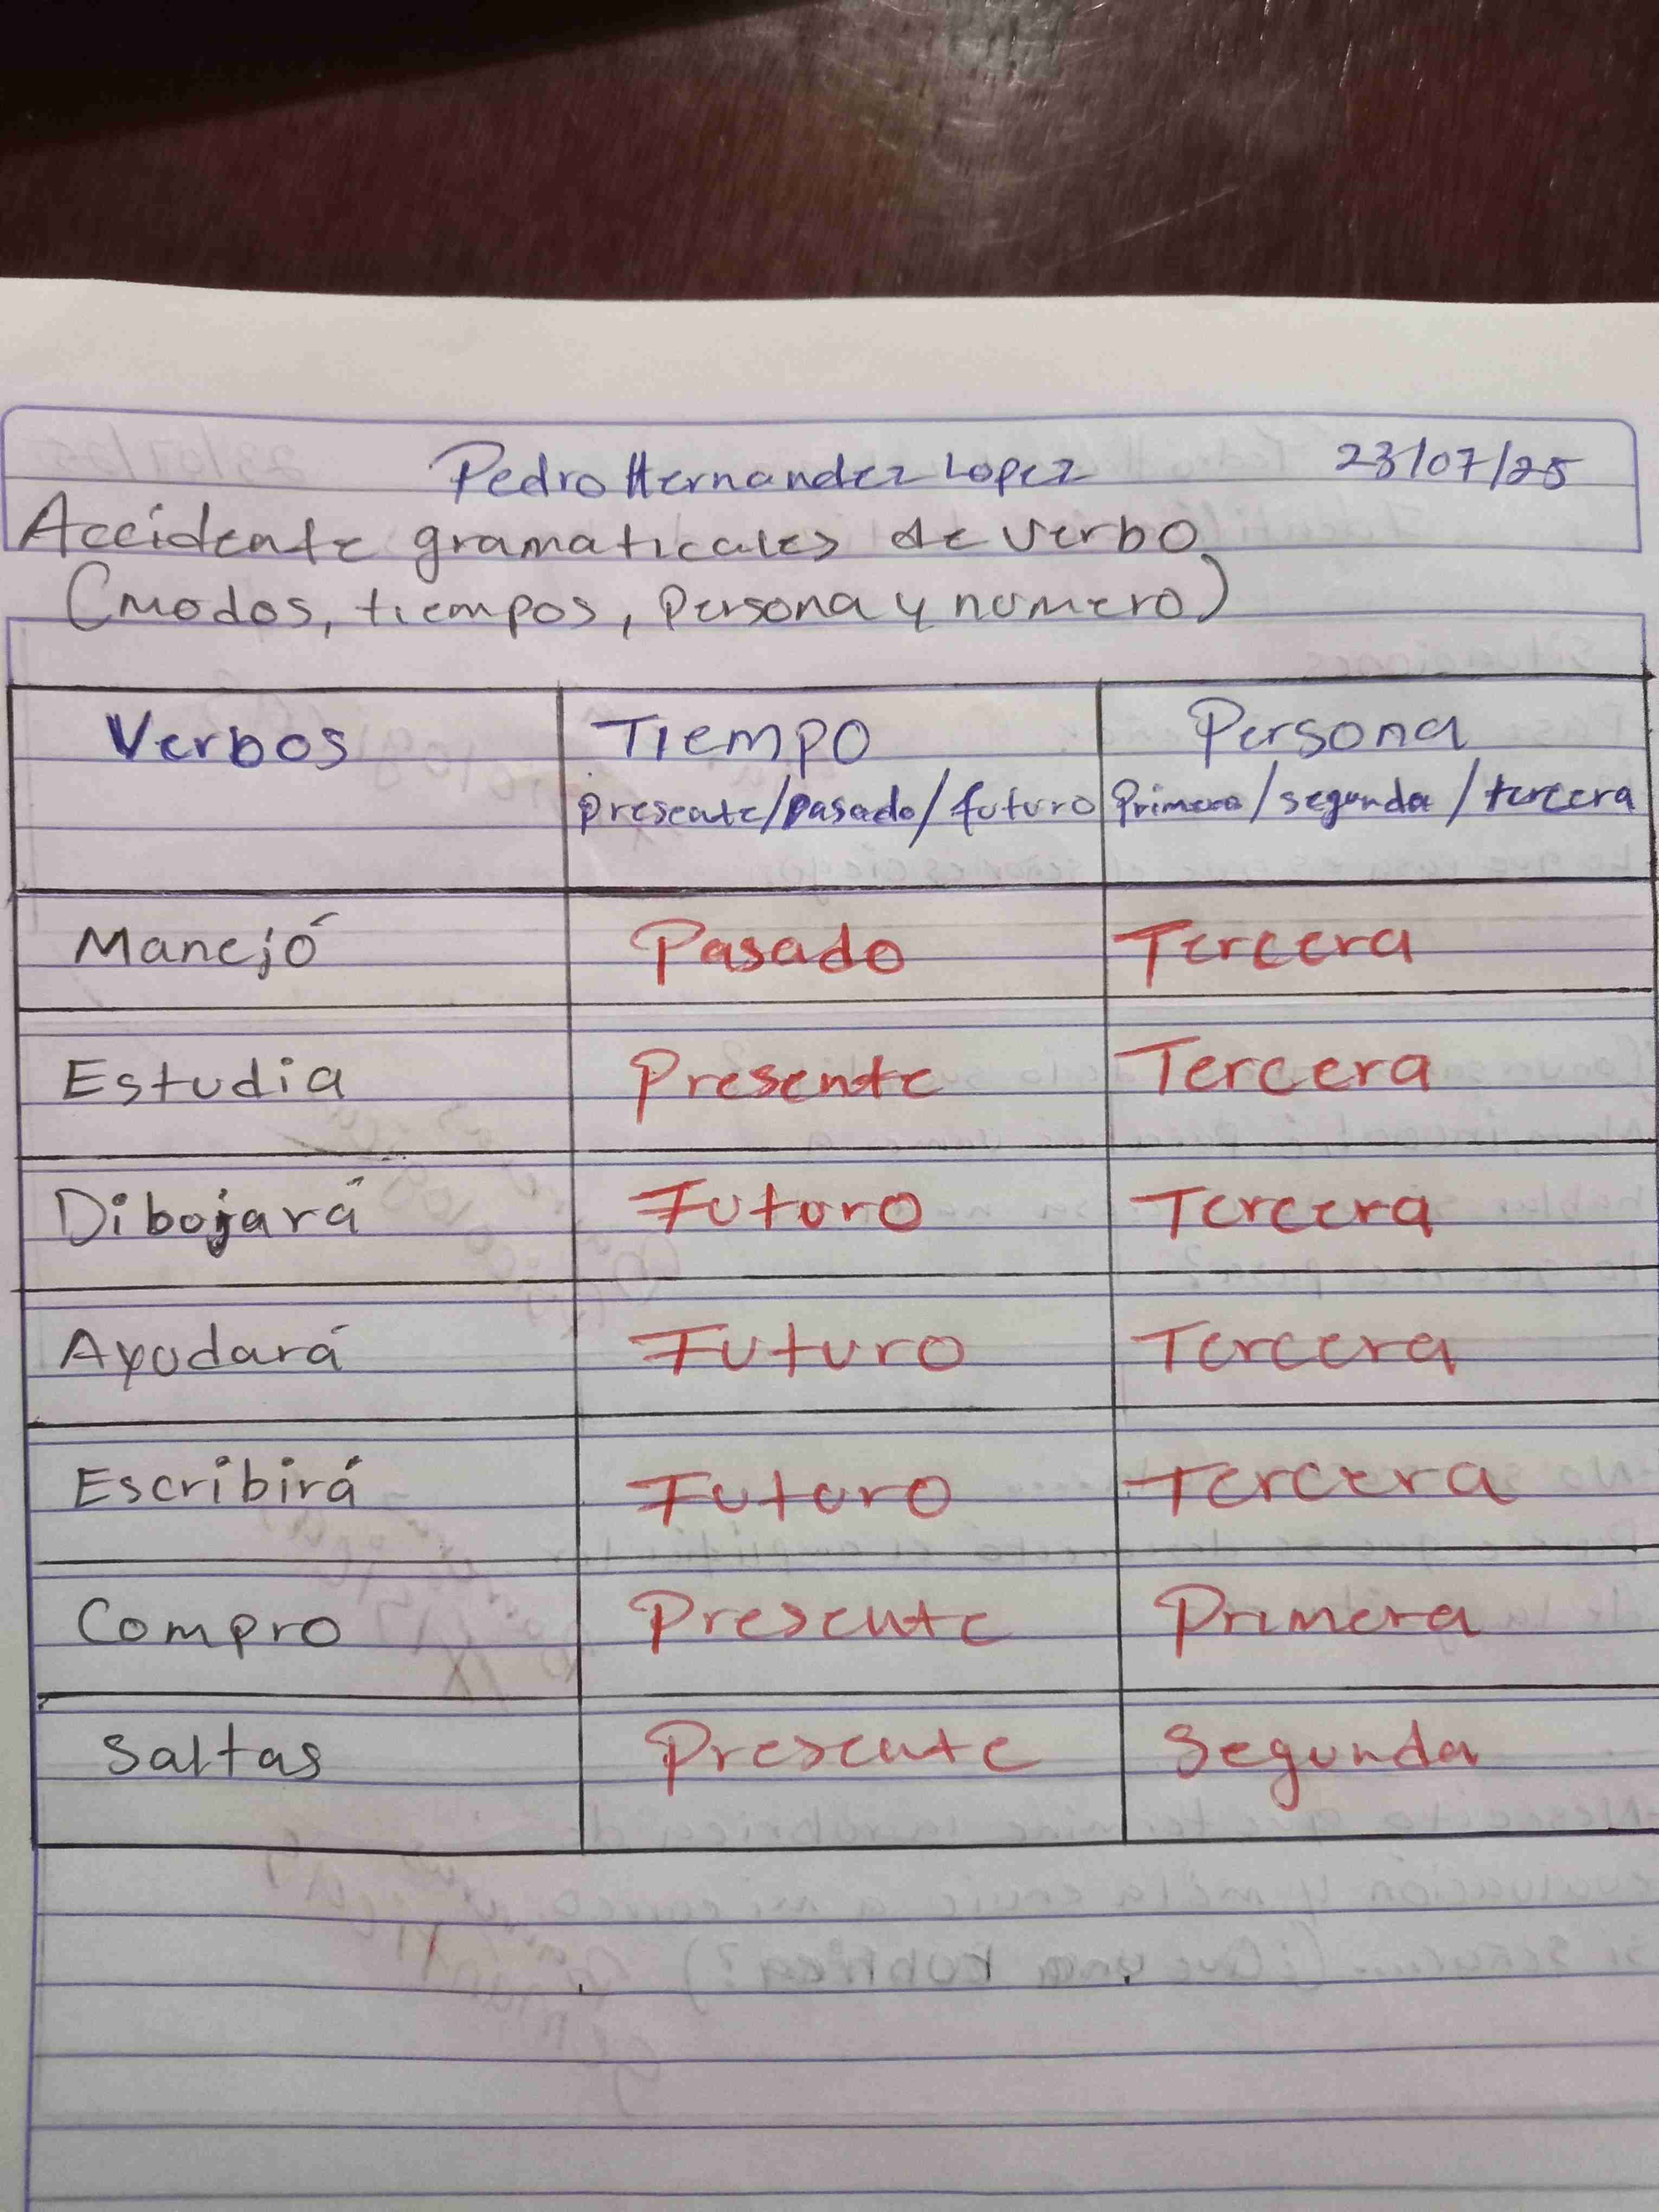 Pedro Hernandez Lopez 23/07/25
Accidente gramaticales de verbo
(modos, tiempos, persona y numero)
Verbos Tiempo Persona
presente/pasado/futuro primera/segunda/tercera
Manejó Pasado Tercera
Estudia Presente Tercera
Dibojará Futuro Tercera
Ayudará Futuro Tercera
Escribirá Futuro Tercera
Compro Presente Primera
Saltas Presente Segunda